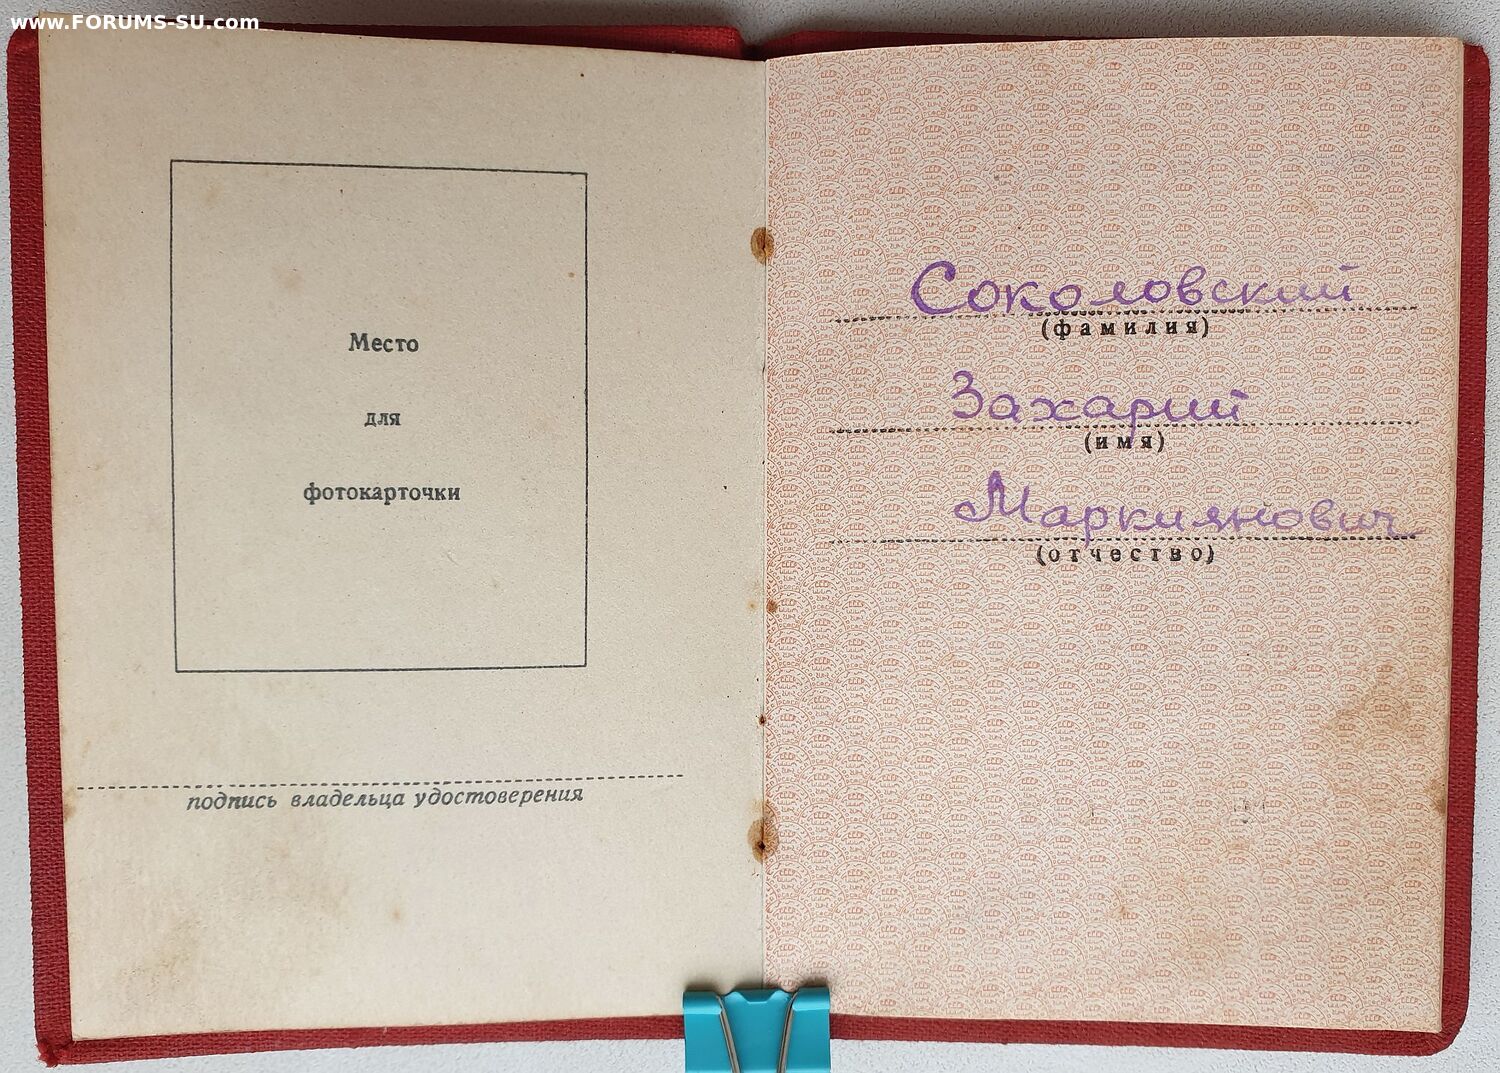 www.FORUMS-SU.com
Место
для
фотокарточки
подпись владельца удостоверения
Соколовский
(фамилия)
Захарий
(имя)
Маркиянович
(отчество)